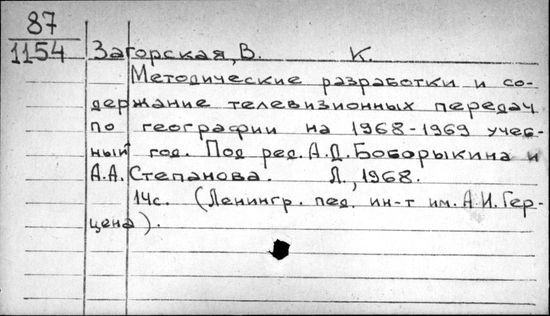 87
1154 Загорская, В. К.
Методические разработки и со-
держание телевизионных передач
по географии на 1968-1969 учеб-
ный год. Под ред. А.Д. Боборыкина и
А.А. Степанова. Л., 1968.
14с. (Ленингр. пед. ин-т им. А.И. Гер-
цена).